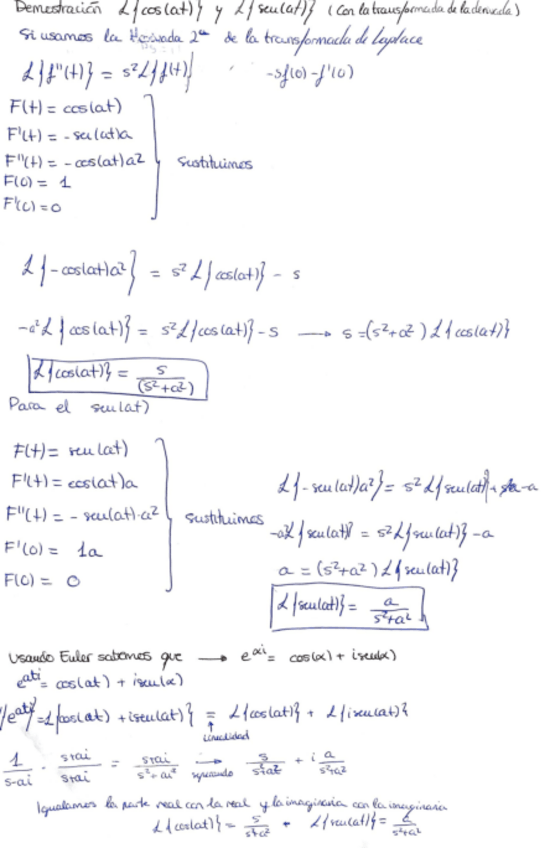 Demostración L{cos(at)} y L{sen(at)} (con la transformada de la derivada)
Si usamos la derivada 2ª de la transformada de Laplace
L{f''(t)} = s²L{f(t)} -sf(0)-f'(0)
F(t) = cos(at)
F'(t) = -sen(at)a
F''(t) = -cos(at)a²
F(0) = 1
F'(0) = 0
sustituimos
L{-cos(at)a²} = s² L{cos(at)} - s
-a²L{cos(at)} = s²L{cos(at)} - s → s = (s²+a²) L{cos(at)}
L{cos(at)} = s/(s²+a²)
Para el sen(at)
F(t) = sen(at)
F'(t) = cos(at)a
F''(t) = -sen(at)·a²
F'(0) = 1a
F(0) = 0
sustituimos
L{-sen(at)a²} = s² L{sen(at)} -a
-a²L{sen(at)} = s²L{sen(at)} -a
a = (s²+a²) L{sen(at)}
L{sen(at)} = a/(s²+a²)
Usando Euler sabemos que → e^αi = cos(α) + i sen(α)
e^ati = cos(at) + i sen(α)
L{e^ati} = L{cos(at) + i sen(at)} = L{cos(at)} + L{i sen(at)}
↑
Linealidad
1/(s-ai) · (s+ai)/(s+ai) = (s+ai)/(s²-ai²) → separando s/(s²+a²) + i a/(s²+a²)
Igualamos la parte real con la real y la imaginaria con la imaginaria
L{cos(at)} = s/(s²+a²) L{sen(at)} = a/(s²+a²)